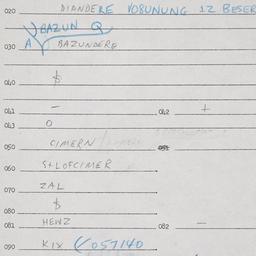 020 DIANDERE VOBUNUNG 12 BESER
BAZUN Q
030 A BAZUNDERE
040 $
041 - 042 +
043 O
050 CIMERN 051
060 S+LOFCIMER
070 ZAL
080 $
081 HEWZ 082 —
090 KIX (057140